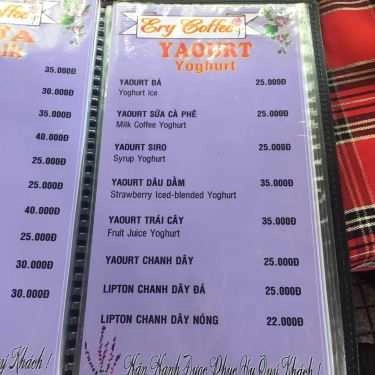 35.000Đ
30.000Đ
35.000Đ
40.000Đ
25.000Đ
25.000Đ
40.000Đ
25.000Đ
30.000Đ
30.000Đ
Khách !
Ery Coffee
YAOURT
Yoghurt
YAOURT ĐÁ 25.000Đ
Yoghurt Ice
YAOURT SỮA CÀ PHÊ 25.000Đ
Milk Coffee Yoghurt
YAOURT SIRO 25.000Đ
Syrup Yoghurt
YAOURT DÂU DẦM 35.000Đ
Strawberry Iced-blended Yoghurt
YAOURT TRÁI CÂY 35.000Đ
Fruit Juice Yoghurt
YAOURT CHANH DÂY 25.000Đ
LIPTON CHANH DÂY ĐÁ 25.000Đ
LIPTON CHANH DÂY NÓNG 22.000Đ
Hân Hạnh Được Phục Vụ Quý Khách !